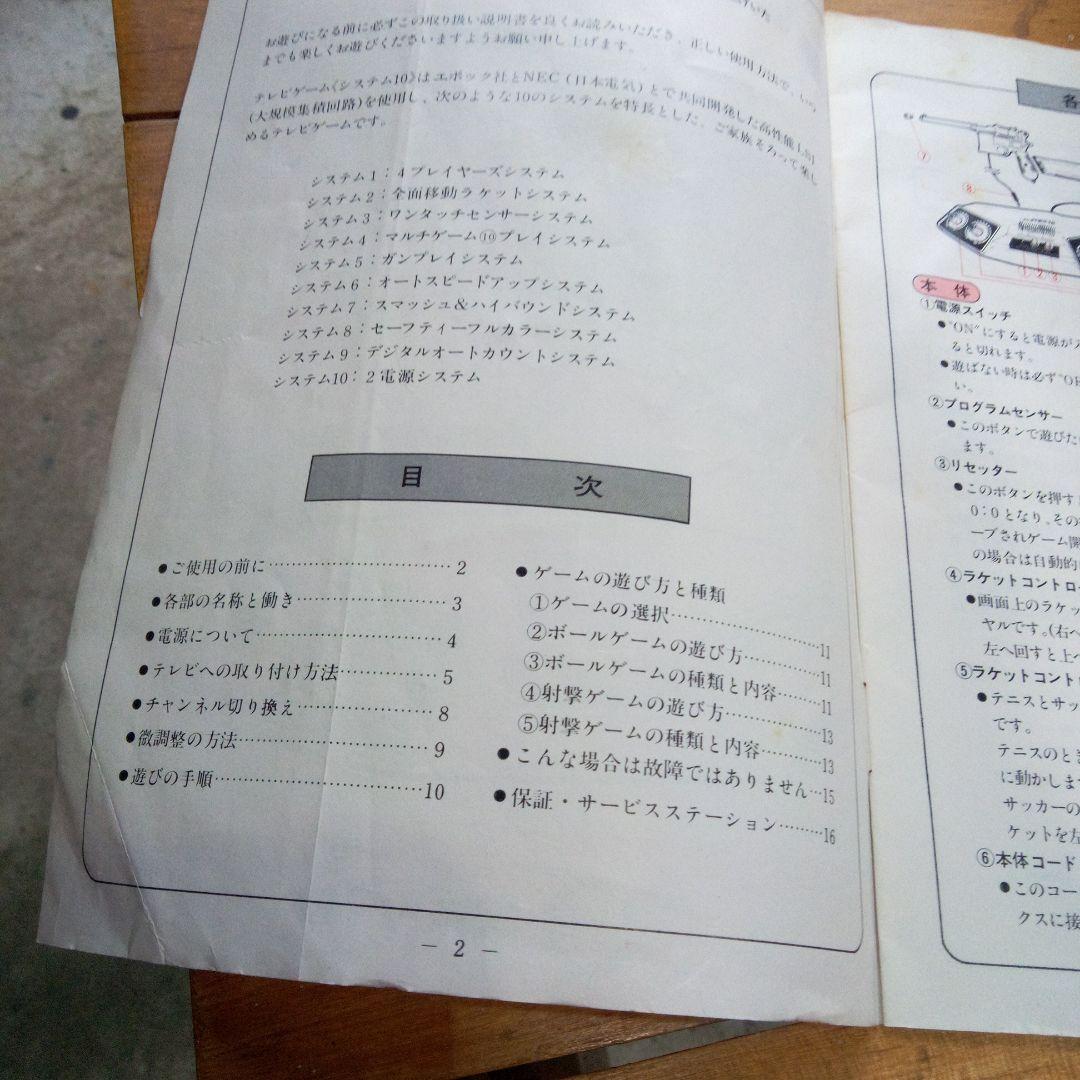 お遊びになる前に必ずこの取り扱い説明書を良くお読みいただき、正しい使用方法で、いつ
までも楽しくお遊びくださいますようお願い申し上げます。
テレビゲーム《システム10》はエポック社とNEC(日本電気)とで共同開発した高性能LSI
(大規模集積回路)を使用し、次のような10のシステムを特長とした、ご家族そろって楽し
めるテレビゲームです。
システム1:4プレイヤーズシステム
システム2:全面移動ラケットシステム
システム3:ワンタッチセンサーシステム
システム4:マルチゲーム⑩プレイシステム
システム5:ガンプレイシステム
システム6:オートスピードアップシステム
システム7:スマッシュ&ハイバウンドシステム
システム8:セーフティーフルカラーシステム
システム9:デジタルオートカウントシステム
システム10:2電源システム
目次
●ご使用の前に……………………………2
●各部の名称と働き………………………3
●電源について……………………………4
●テレビへの取り付け方法………………5
●チャンネル切り換え……………………8
●微調整の方法……………………………9
●遊びの手順………………………………10
●ゲームの遊び方と種類
①ゲームの選択…………………………11
②ボールゲームの遊び方………………11
③ボールゲームの種類と内容…………11
④射撃ゲームの遊び方…………………13
⑤射撃ゲームの種類と内容……………13
●こんな場合は故障ではありません…15
●保証・サービスステーション………16
― 2 ―
各
⑦
⑧
①②③
本体
①電源スイッチ
●"ON"にすると電源が
ると切れます。
●遊ばない時は必ず"O
い。
②プログラムセンサー
●このボタンで遊びた
ます。
③リセッター
●このボタンを押す
0:0となり、その
ープされゲーム開
の場合は自動的
④ラケットコントロー
●画面上のラケッ
ヤルです。(右へ
左へ回すと上へ
⑤ラケットコント
●テニスとサッ
です。
テニスのとき
に動かしま
サッカーの
ケットを左
⑥本体コード
●このコー
クスに接